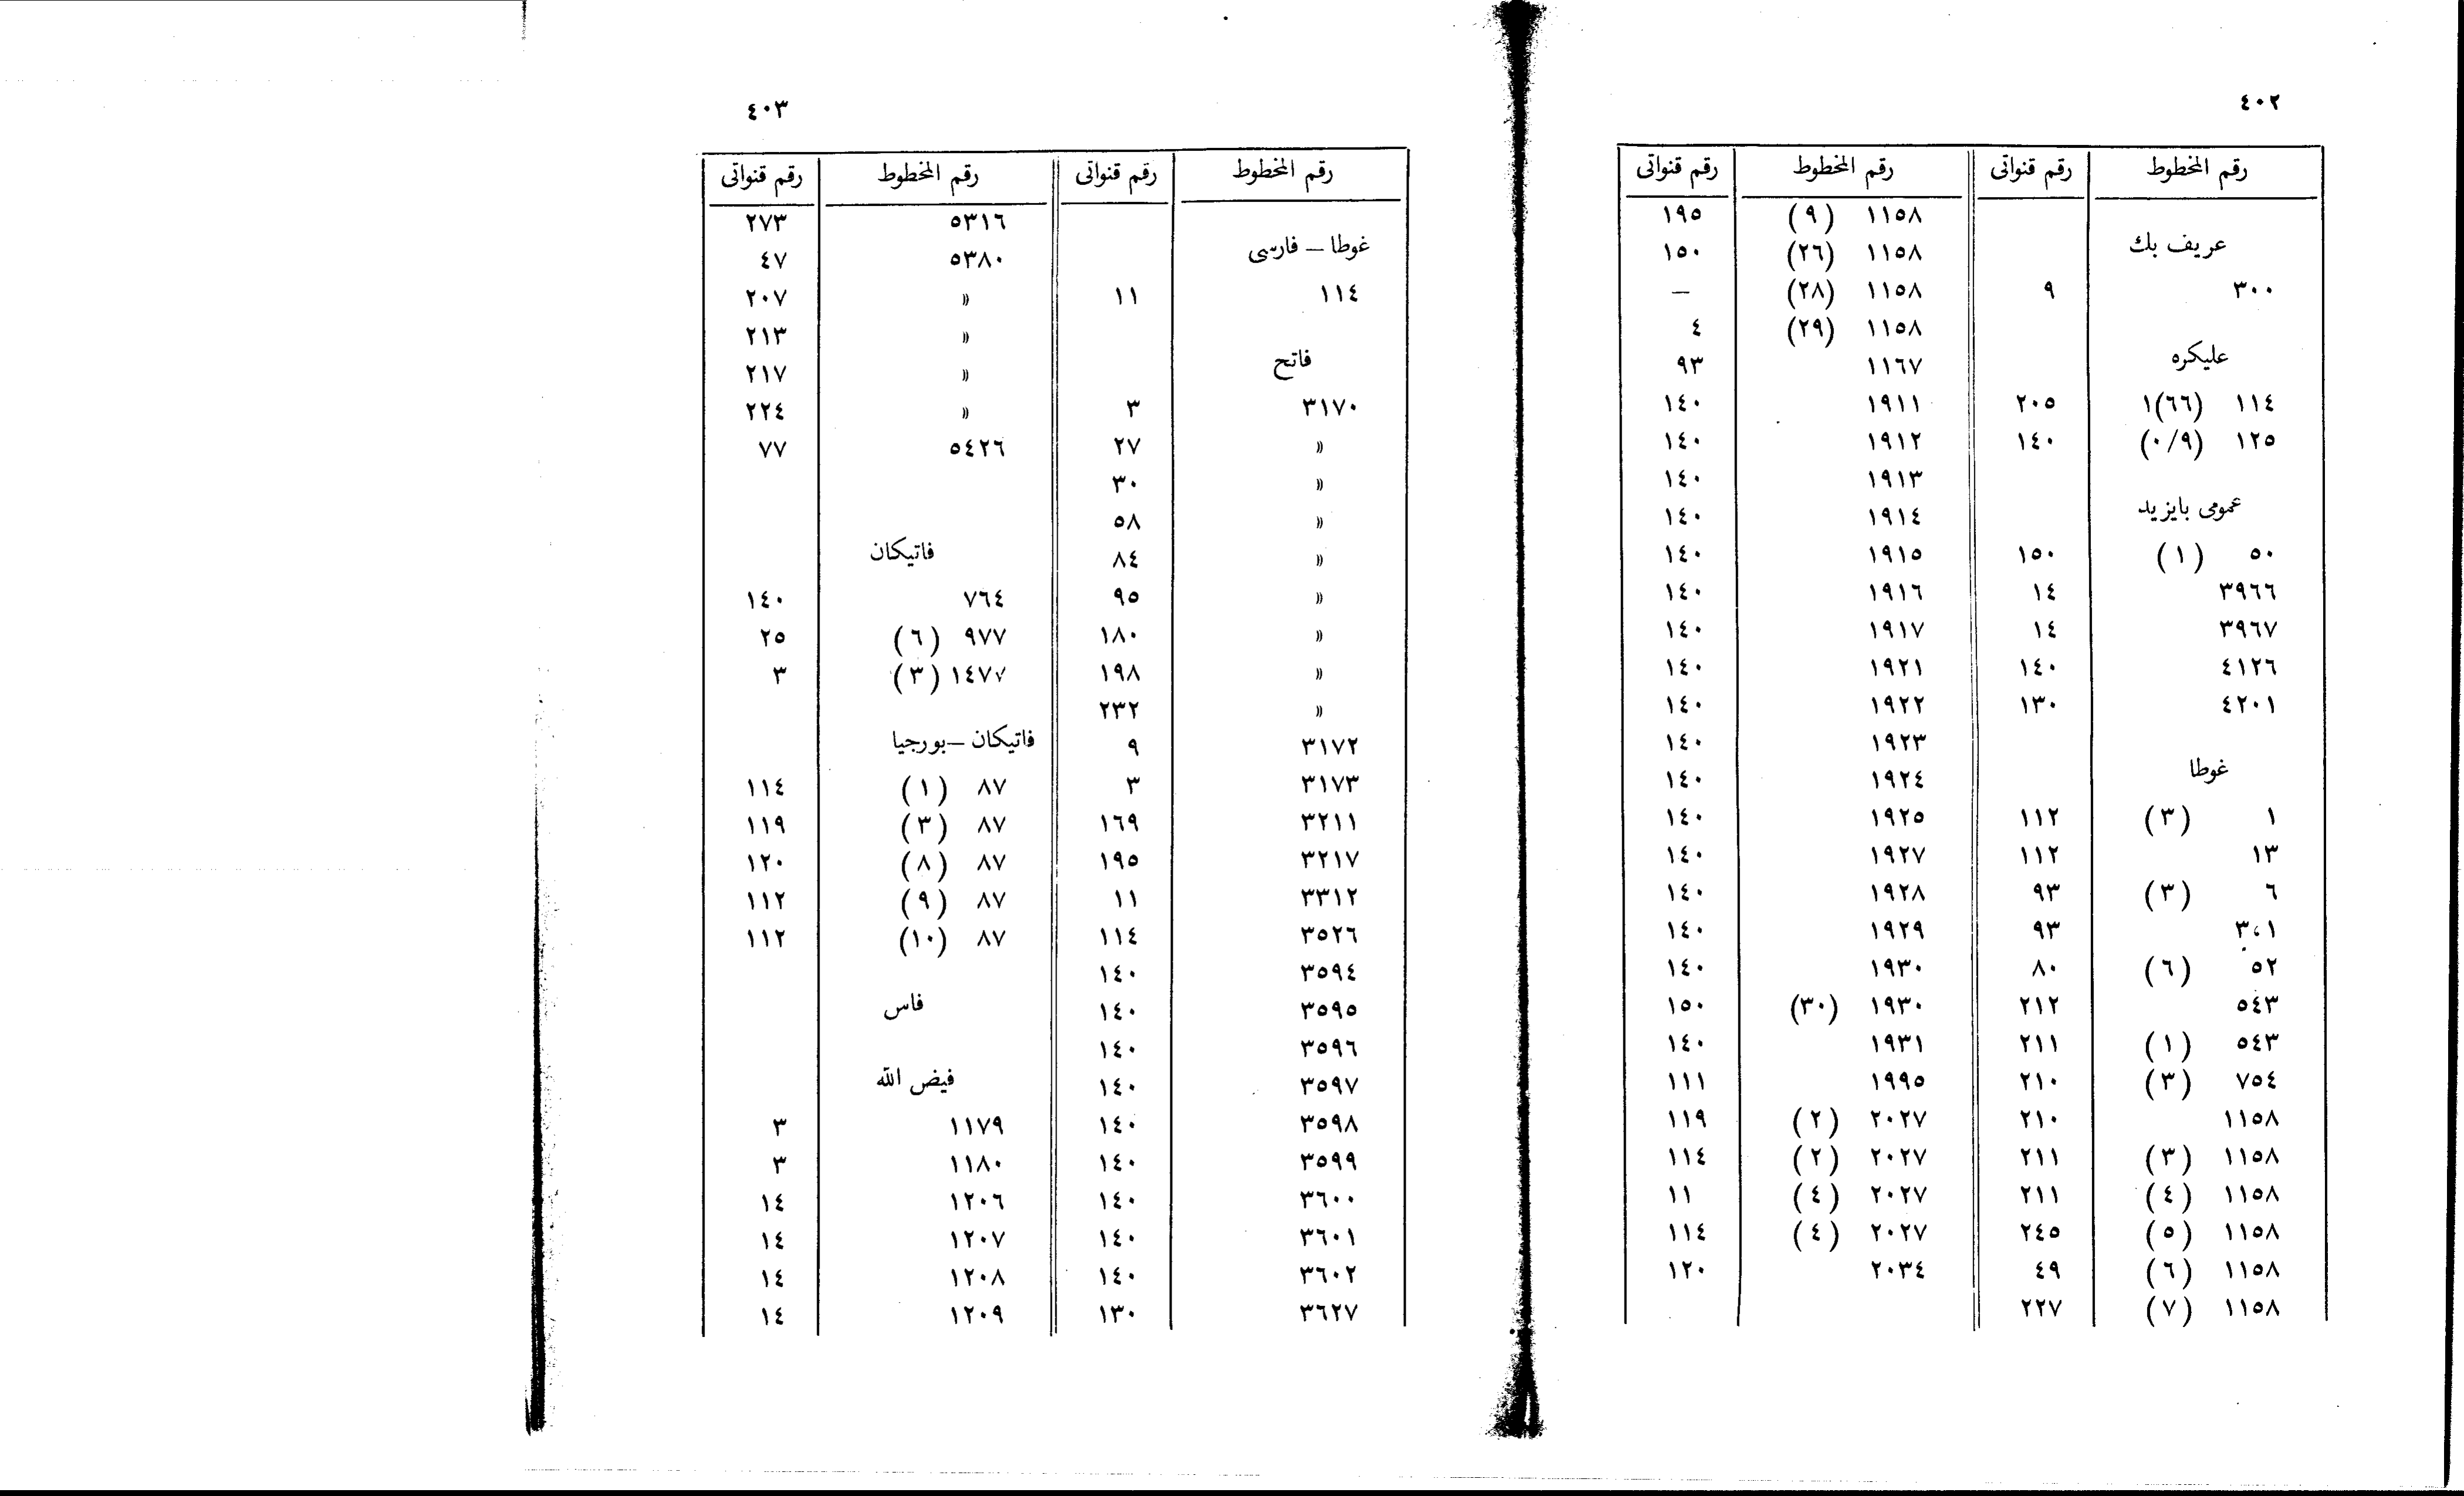 ٤٠٢
رقم المخطوط رقم قنواتى
عريف بك
٣٠٠ ٩
عليكره
١١٤ (٦٦)١ ٢٠٥
١٢٥ (٠/٩) ١٤٠
عمومى بايزيد
٥٠ (١) ١٥٠
٣٩٦٦ ١٤
٣٩٦٧ ١٤
٤١٢٦ ١٤٠
٤٢٠١ ١٣٠
غوطا
١ (٣) ١١٢
١٣ ١١٢
٦ (٣) ٩٣
٣٠١ ٩٣
٥٢ (٦) ٨٠
٥٤٣ ٢١٢
٥٤٣ (١) ٢١١
٧٥٤ (٣) ٢١٠
١١٥٨ ٢١٠
١١٥٨ (٣) ٢١١
١١٥٨ (٤) ٢١١
١١٥٨ (٥) ٢٤٥
١١٥٨ (٦) ٤٩
١١٥٨ (٧) ٢٢٧
رقم المخطوط رقم قنواتى
١١٥٨ (٩) ١٩٥
١١٥٨ (٢٦) ١٥٠
١١٥٨ (٢٨) —
١١٥٨ (٢٩) ٤
١١٦٧ ٩٣
١٩١١ ١٤٠
١٩١٢ ١٤٠
١٩١٣ ١٤٠
١٩١٤ ١٤٠
١٩١٥ ١٤٠
١٩١٦ ١٤٠
١٩١٧ ١٤٠
١٩٢١ ١٤٠
١٩٢٢ ١٤٠
١٩٢٣ ١٤٠
١٩٢٤ ١٤٠
١٩٢٥ ١٤٠
١٩٢٧ ١٤٠
١٩٢٨ ١٤٠
١٩٢٩ ١٤٠
١٩٣٠ ١٤٠
١٩٣٠ (٣٠) ١٥٠
١٩٣١ ١٤٠
١٩٩٥ ١١١
٢٠٢٧ (٢) ١١٩
٢٠٢٧ (٢) ١١٤
٢٠٢٧ (٤) ١١
٢٠٢٧ (٤) ١١٤
٢٠٣٤ ١٢٠
٤٠٣
رقم المخطوط رقم قنواتى
غوطا – فارسى
١١٤ ١١
فاتح
٣١٧٠ ٣
» ٢٧
» ٣٠
» ٥٨
» ٨٤
» ٩٥
» ١٨٠
» ١٩٨
» ٢٣٢
٣١٧٢ ٩
٣١٧٣ ٣
٣٢١١ ١٦٩
٣٢١٧ ١٩٥
٣٣١٢ ١١
٣٥٢٦ ١١٤
٣٥٩٤ ١٤٠
٣٥٩٥ ١٤٠
٣٥٩٦ ١٤٠
٣٥٩٧ ١٤٠
٣٥٩٨ ١٤٠
٣٥٩٩ ١٤٠
٣٦٠٠ ١٤٠
٣٦٠١ ١٤٠
٣٦٠٢ ١٤٠
٣٦٢٧ ١٣٠
رقم المخطوط رقم قنواتى
٥٣١٦ ٢٧٣
٥٣٨٠ ٤٧
» ٢٠٧
» ٢١٣
» ٢١٧
» ٢٢٤
٥٤٢٦ ٧٧
فاتيكان
٧٦٤ ١٤٠
٩٧٧ (٦) ٢٥
١٤٧٧ (٣) ٣
فاتيكان –بورجيا
٨٧ (١) ١١٤
٨٧ (٣) ١١٩
٨٧ (٨) ١٢٠
٨٧ (٩) ١١٢
٨٧ (١٠) ١١٢
فاس
فيض الله
١١٧٩ ٣
١١٨٠ ٣
١٢٠٦ ١٤
١٢٠٧ ١٤
١٢٠٨ ١٤
١٢٠٩ ١٤